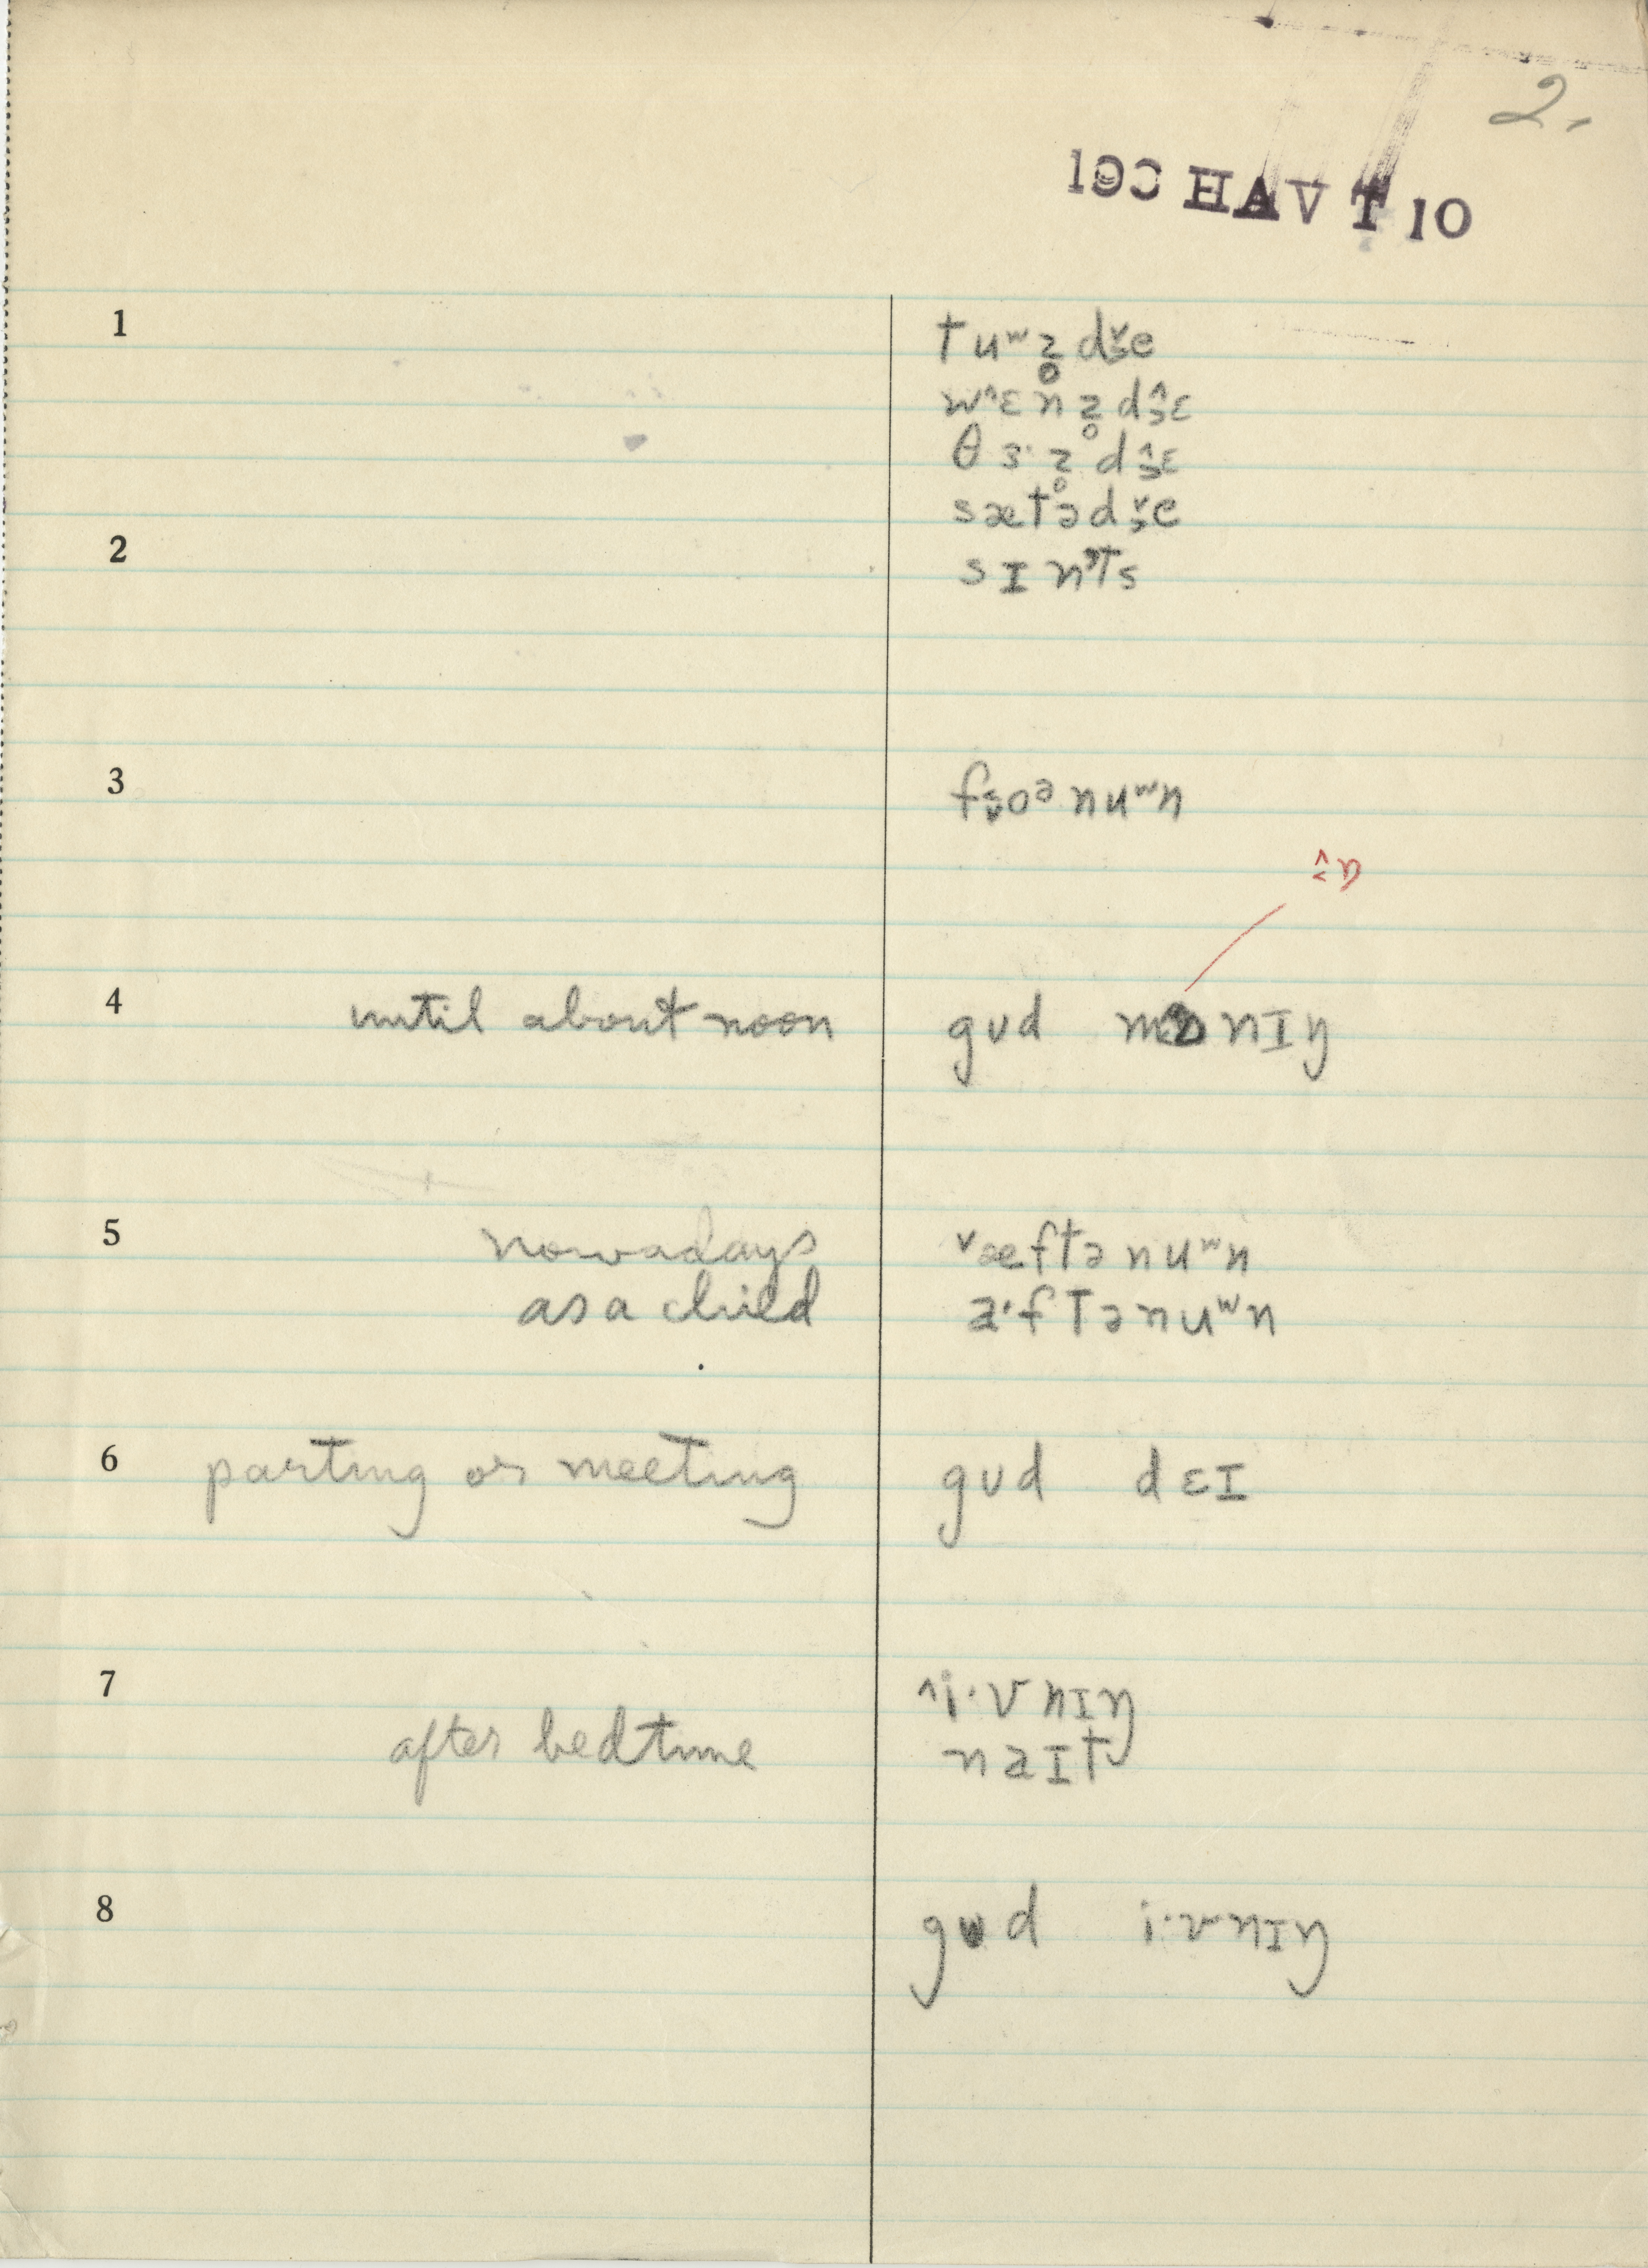 2.
1
tuʷz̥dɪ̬e
wˆɛnz̥dɪ̂ɛ
θɜ·z̥dɪ̂ɛ
sætədɪ̬e
2
sɪnᵗs
3
oᵊnuʷn
4 until about noon gʊd nɪŋ
5 nowadays ˇæftənuʷn
as a child a·ftənuʷn
6 parting or meeting gʊd dɛɪ
7 ˆi·vnɪŋ
after bedtime naɪt
8 gʊd i·vnɪŋ